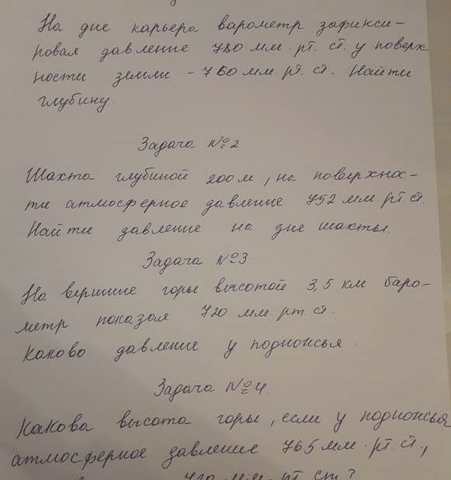 На дне карьера барометр зафикси-
ровал давление 780 мм. рт. ст. у поверх
ности земли - 760 мм рт. ст. Найти
глубину.
Задача №2
Шахта глубиной 200 м, на поверхнос-
ти атмосферное давление 752 мм рт ст.
Найти давление на дне шахты.
Задача №3
На вершине горы высотой 3,5 км баро-
метр показал 720 мм рт ст.
Каково давление у подножья.
Задача №4.
Какова высота горы, если у подножья
атмосферное давление 765 мм. рт. ст,
мм. рт ст?